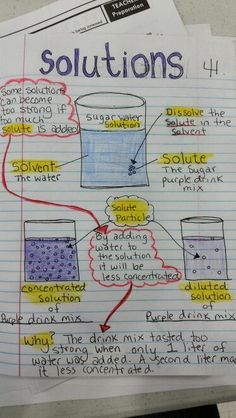 TEACHE
Preparation
Solutions
41.
Some solutions
can become
too strong if
too much
solute is added
sugar water
solution
Dissolve the
solute in the
solvent
Solvent
The water
Solute
The Sugar
purple drink
mix
Solute
Particle
By adding
water to
the solution
it will be
less concentrated.
concentrated
solution
of
Purple drink mix
diluted
solution
of
Purple drink mix
Why? The drink mix tasted too
strong when only 1 liter of
water was added. A second liter made
it less concentrated.